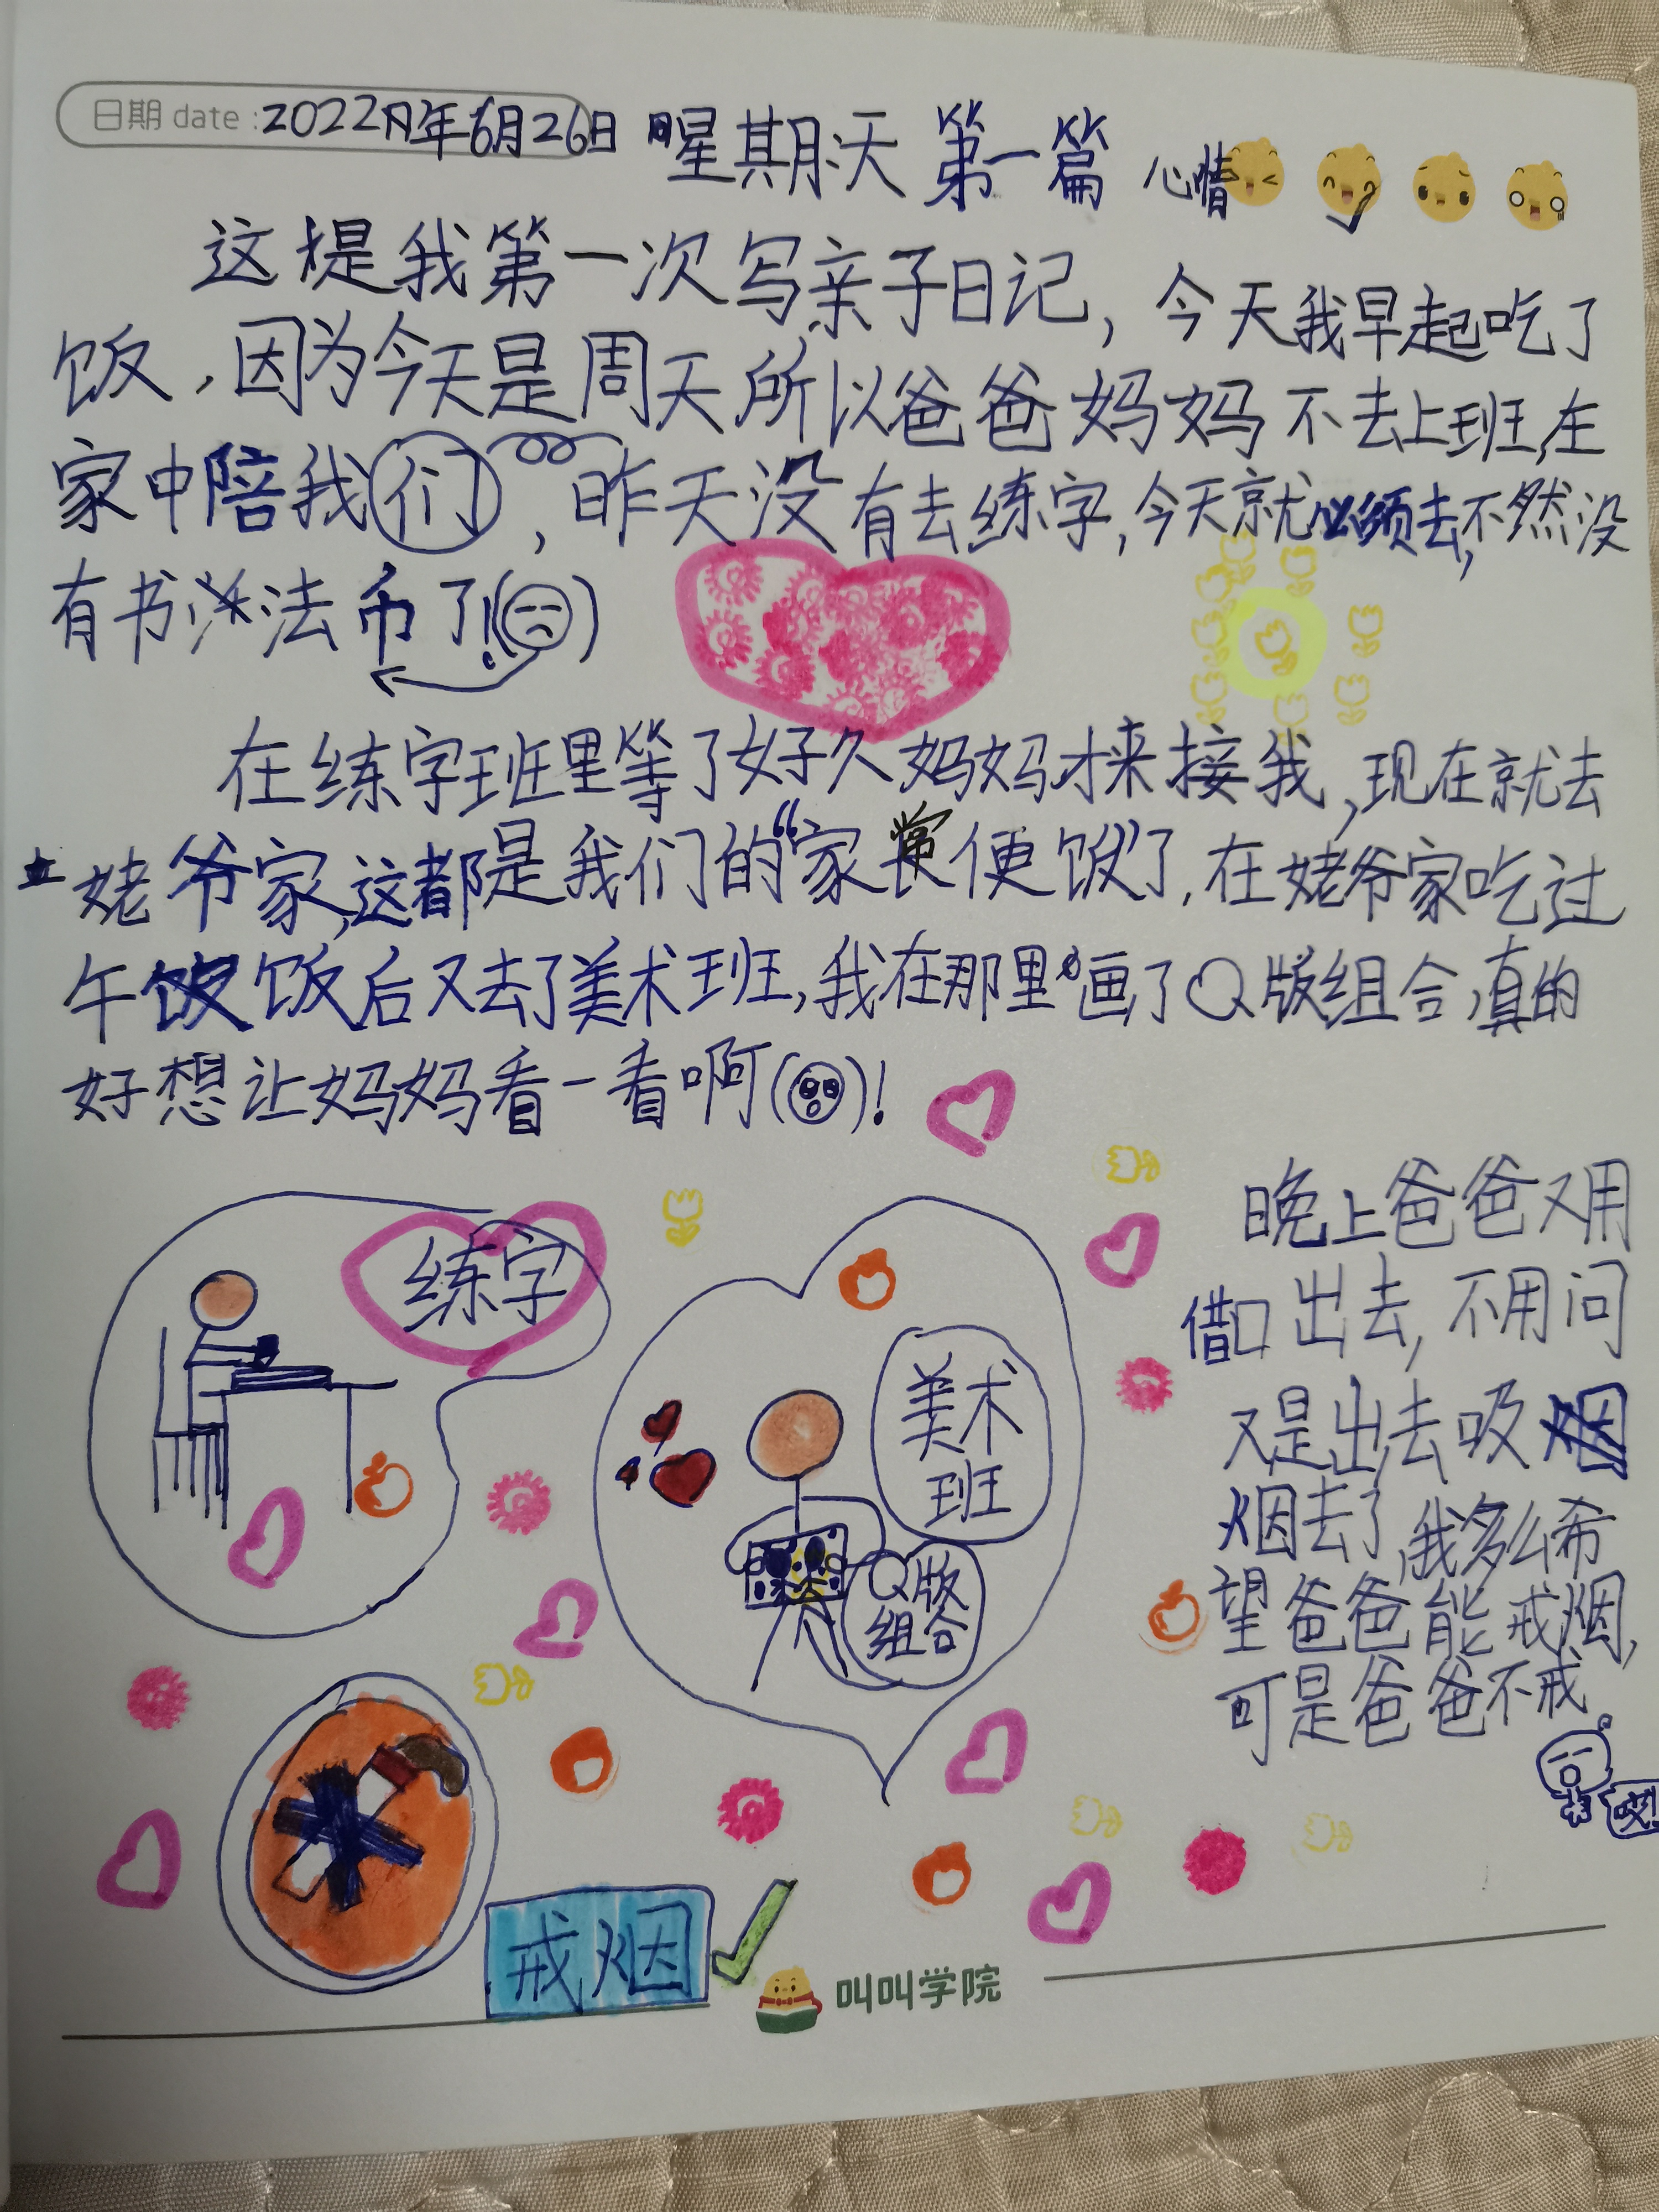 日期 date : 2022年6月26日 星期天 第一篇 心情
这是我第一次写亲子日记, 今天我早起吃了
饭, 因为今天是周天所以爸爸妈妈不去上班,在
家中陪我们, 昨天没有去练字, 今天就必须去,不然没
有书法币了!
在练字班里等了好久妈妈才来接我, 现在就去
姥爷家,这都是我们的“家常便饭”了, 在姥爷家吃过
午饭后又去了美术班, 我在那里画了Q版组合,真的
好想让妈妈看一看啊()!
晚上爸爸又用
借口出去, 不用问
又是出去吸
烟去了,我多么希
望爸爸能戒烟,
可是爸爸不戒
哎!
练字
美术
班
Q版
组合
戒烟
叫叫学院